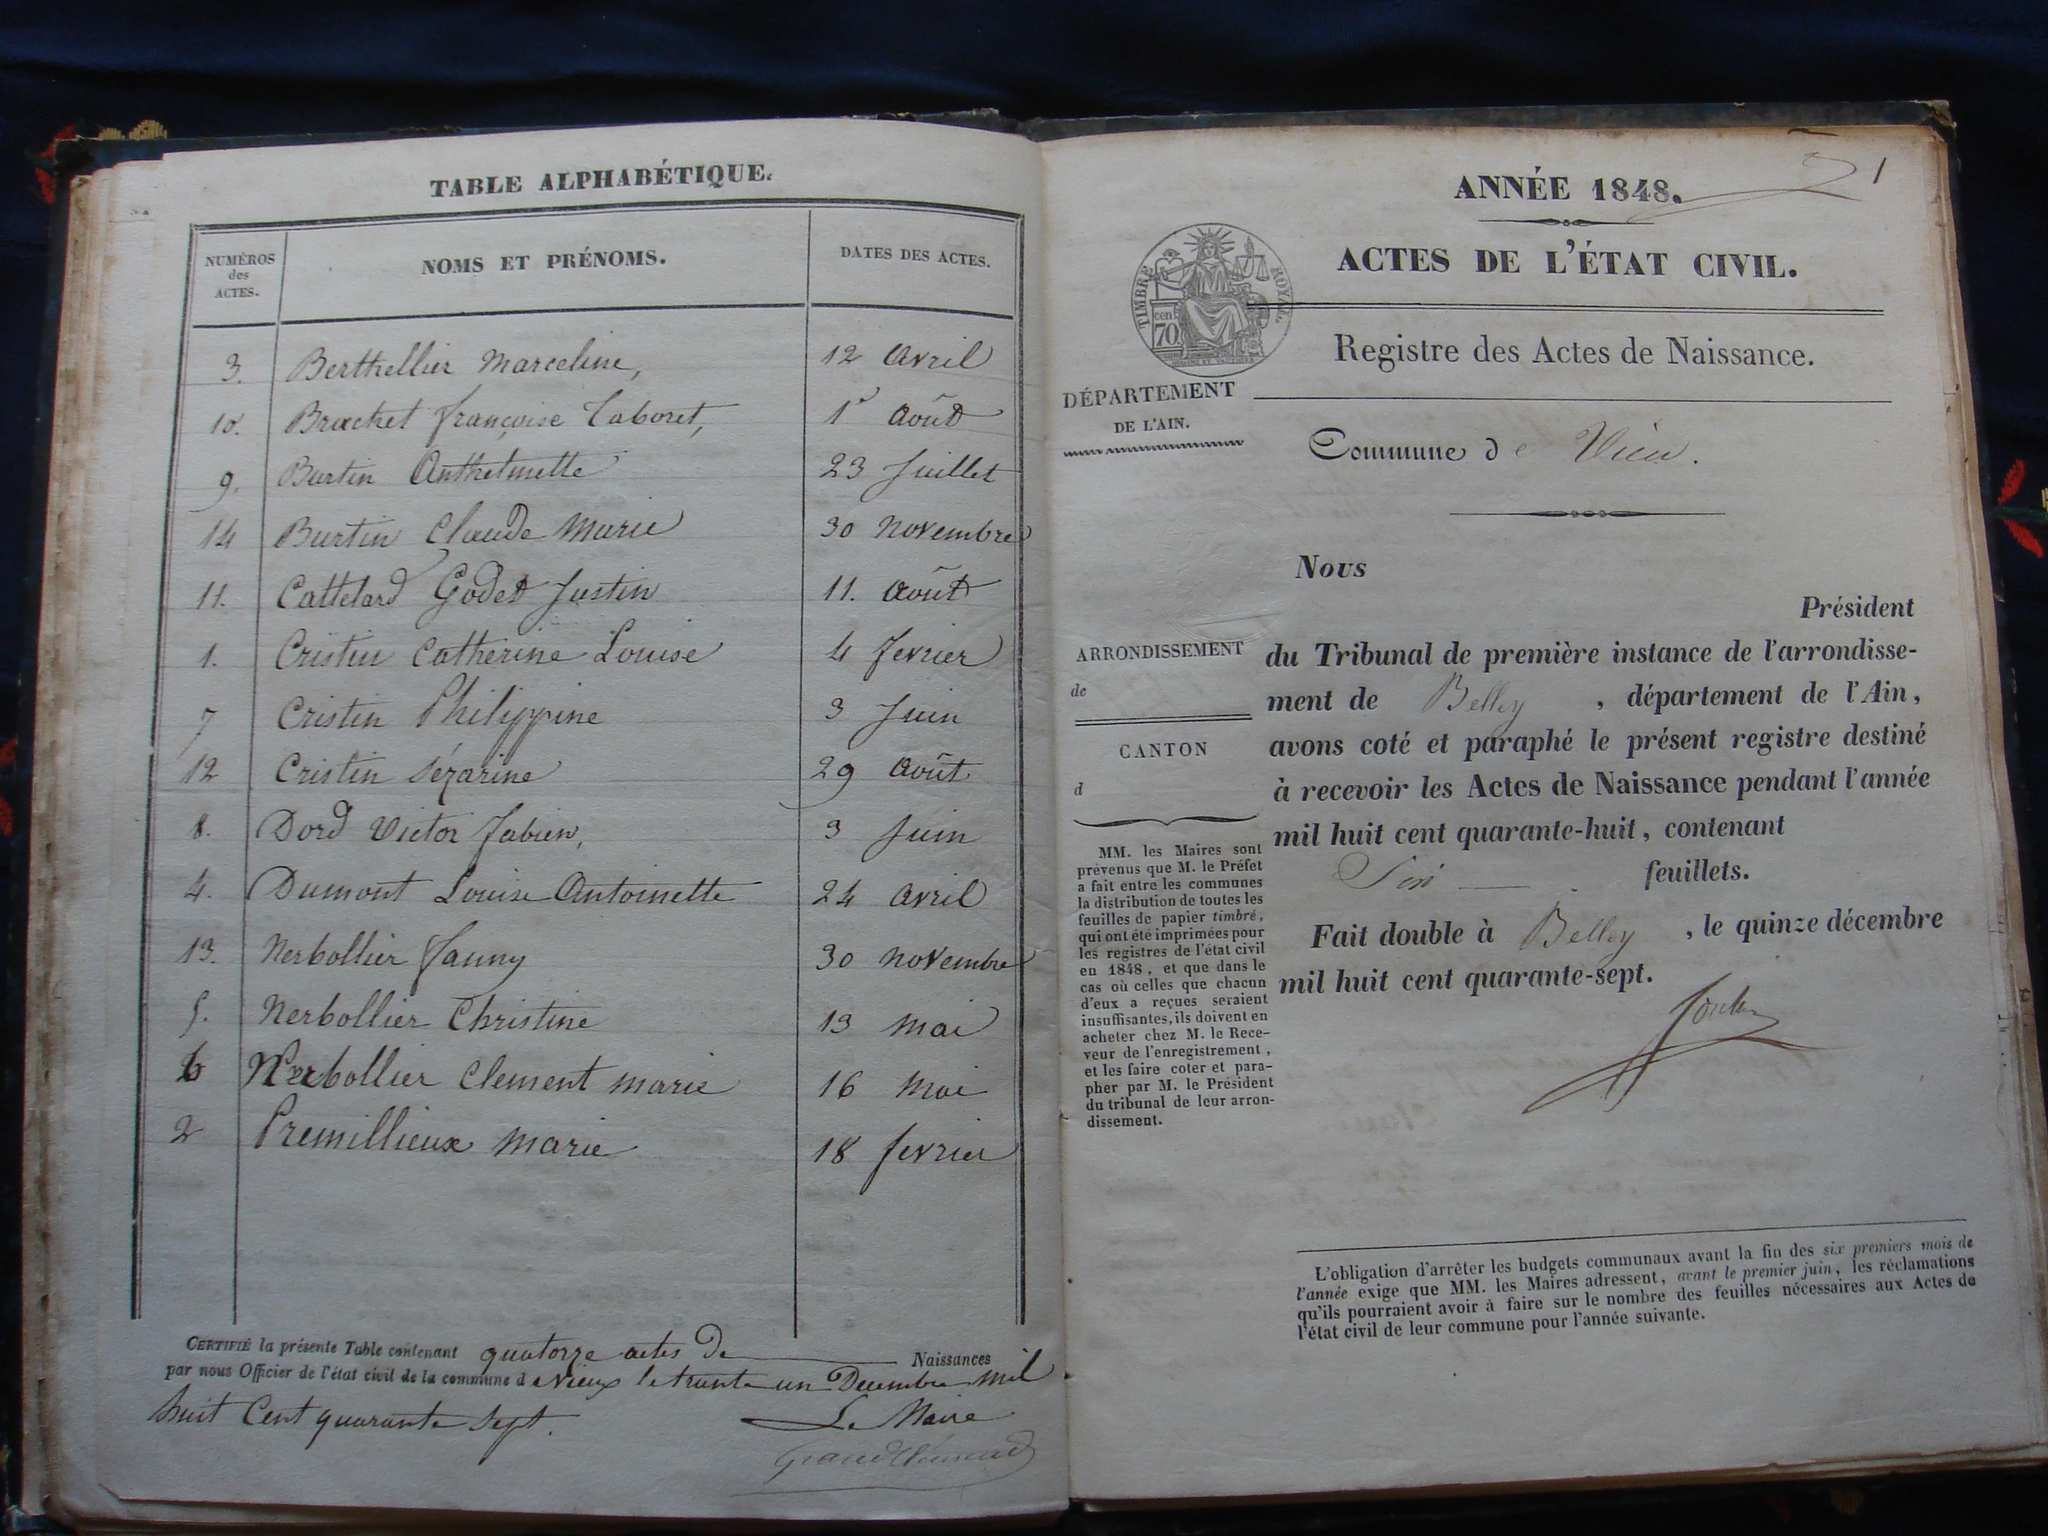 TABLE ALPHABÉTIQUE.
NUMÉROS
des
ACTES.
NOMS ET PRÉNOMS.
DATES DES ACTES.
3. Berthellier Marceline, 12 Avril
10. Brachet françoise Taboret, 1r Août
9. Burtin Anthelmette 23 Juillet
14 Burtin Claude Marie 30 Novembre
11. Cattelard Godet Justin 11. Août
1. Cristin Catherine Louise 4 fevrier
7 Cristin Philippine 3 Juin
12 Cristin Sézarine 29 Août
8. Dord Victor Fabien, 3 Juin
4. Dumont Louise Antoinette 24 Avril
13. Nerbollier Fanny 30 Novembre
5. Nerbollier Christine 13 Mai
6 Nerbollier Clement Marie 16 Mai
2 Premillieux Marie 18 fevrier
CERTIFIÉ la présente Table contenant quatorze actes De Naissances
par nous Officier de l'état civil de la commune d Vieux le trente un Decembre mil
huit Cent quarante sept.
Le Maire
1
ANNÉE 1848.
ACTES DE L'ÉTAT CIVIL.
TIMBRE ROYAL
70 cen
Registre des Actes de Naissance.
DÉPARTEMENT
DE L'AIN.
Commune de Vieu.
Nous
Président
du Tribunal de première instance de l'arrondisse-
ment de Belley, département de l'Ain,
avons coté et paraphé le présent registre destiné
à recevoir les Actes de Naissance pendant l'année
mil huit cent quarante-huit, contenant
feuillets.
Fait double à Belley, le quinze décembre
mil huit cent quarante-sept.
ARRONDISSEMENT
de
CANTON
d
MM. les Maires sont
prévenus que M. le Préfet
a fait entre les communes
la distribution de toutes les
feuilles de papier timbré,
qui ont été imprimées pour
les registres de l'état civil
en 1848, et que dans le
cas où celles que chacun
d'eux a reçues seraient
insuffisantes, ils doivent en
acheter chez M. le Rece-
veur de l'enregistrement,
et les faire coter et para-
pher par M. le Président
du tribunal de leur arron-
dissement.
L'obligation d'arrêter les budgets communaux avant la fin des six premiers mois de
l'année exige que MM. les Maires adressent, avant le premier juin, les réclamations
qu'ils pourraient avoir à faire sur le nombre des feuilles nécessaires aux Actes de
l'état civil de leur commune pour l'année suivante.